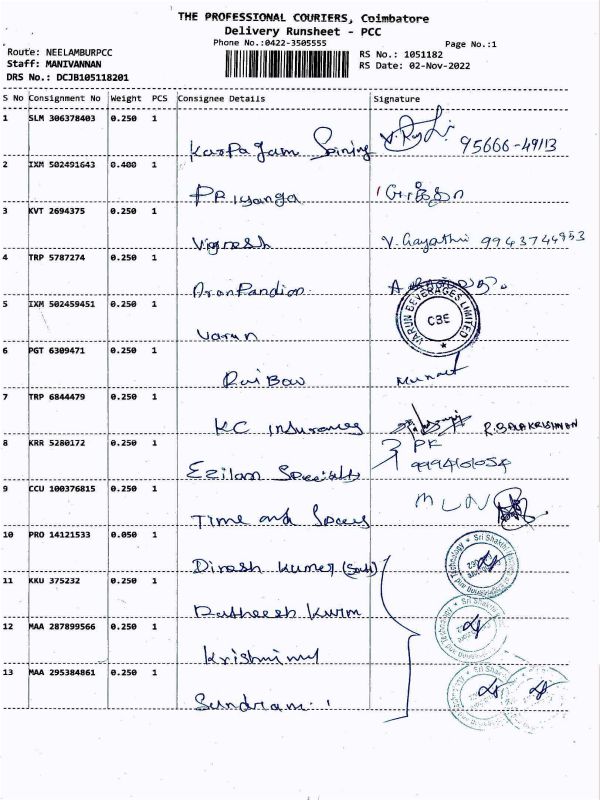 THE PROFESSIONAL COURIERS, Coimbatore
Delivery Runsheet - PCC
Phone No.:0422-3505555
Page No.:1
Route: NEELAMBURPCC
Staff: MANIVANNAN
DRS No.: DCJB105118201
RS No.: 1051182
RS Date: 02-Nov-2022
S No Consignment No Weight PCS Consignee Details Signature
1 SLM 306378403 0.250 1 Karpagam Spining 95666-49113
2 IXM 502491643 0.400 1 PRiyanga
3 KVT 2694375 0.250 1 Vignesh V. Gayathri 9943744953
4 TRP 5787274 0.250 1 ArunPandian
5 IXM 502459451 0.250 1 Varun VARUN BEVERAGES LIMITED CBE
6 PGT 6309471 0.250 1 RaiBow
7 TRP 6844479 0.250 1 KC insurance R.BALAKRISHNAN
8 KRR 5280172 0.250 1 Ezilan Specialty PK
9 CCU 100376815 0.250 1 Time and Spaces
10 PRO 14121533 0.050 1 Dinesh Kumar Sri Shakthi and Technology
11 KKU 375232 0.250 1
12 MAA 287899566 0.250 1
13 MAA 295384861 0.250 1 Sundram